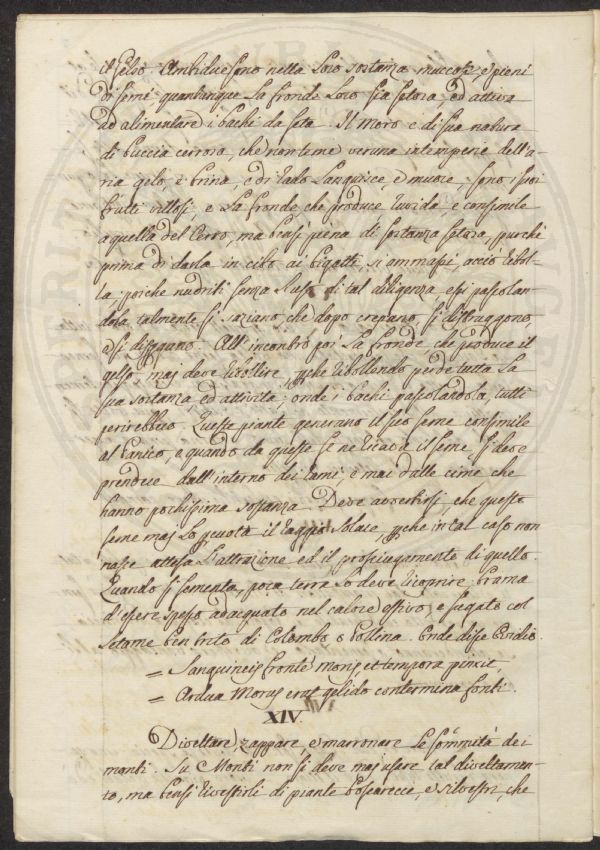 il gelso. Ambidue sono nella loro sostanza muccosi, e pieni
di semi quantunque la fronde loro sia setosa, ed attiva
ad alimentare i bachi da seta. Il moro è di sua natura
di buccia cerrosa, che non teme veruna intemperie dell'a
ria gelo, e brina, e di rado languisce, e muore; sono i suoi
frutti villosi, e la fronde, che produce ruvida, e consimile
a quella del Cerro, ma bensì piena di sostanza setosa, purchè
prima di darla in cibo ai bigatti, si ammassi, acciò ribol-
la; poiche nudriti senza di tal diligenza essi pascolan-
dola talmente si saziano che dopo crepano, si distruggono,
e si disseguano. All'incontro poi la fronde che produce il
gelso, mai deve ribollire, perche ribollendo perde tutta la
sua sostanza ed attività; onde i bachi pascolandola, tutti
perirebbero. Queste piante generano il suo seme consimile
al Panico, e quando da queste se ne ricava il seme, si deve
prendere dall'interno dei rami, e mai dalle cime che
hanno pochissima sostanza. Deve avvertirsi, che questo
seme mai lo scuota il raggio solare, perche in tal caso non
nasce attesa l'attrazione ed il prosciugamento di quello.
Quando si sementa, poca terra lo deve ricoprire; brama
d'essere spesso adaquato nel calore estivo, e fugato col
letame ben trito di Colombo o Pollina. Onde disse Ovidio.
= Sanguineis frontem moris, et tempora pinxit,
= Ardua Morus erat gelido contermina fonti.
XIV.
Diveltare, zappare, e marronare le sommità dei
monti. Su Monti non si deve mai usare tal diveltamen-
to, ma bensì rivestirli di piante boscarecce, e silvestri, che